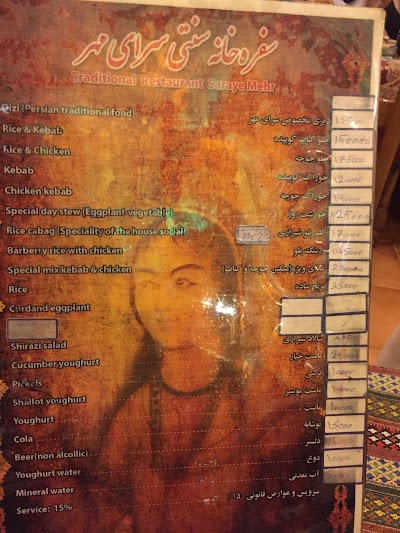 سفره خانه سنتی سرای مهر
Traditional Restaurant Saraye Mehr
Dizi (Persian traditional food) دیزی مخصوص سرای مهر
Rice & Kebab چلو کباب کوبیده 150000
Rice & Chicken چلو جوجه 175000
Kebab خوراک کوبیده 120000
Chicken kebab خوراک جوجه 140000
Special day stew (Eggplant vegetable) خورشت روز 125000
Rice cabag (Speciality of the house social) کلم پلو شیرازی
Barberry rice with chicken زرشک پلو 145000
Special mix kebab & chicken غذای ویژه (میکس جوجه و کباب)
Rice برنج ساده
Curdand eggplant
Shirazi salad سالاد شیرازی
Cucumber youghurt ماست خیار
Pickels ترشی
Shallot youghurt ماست موسیر
Youghurt ماست
Cola نوشابه 15000
Beer(non alcollic) دلستر
Youghurt water دوغ
Mineral water آب معدنی
Service: 15% سرویس و عوارض قانونی : ۱۵٪